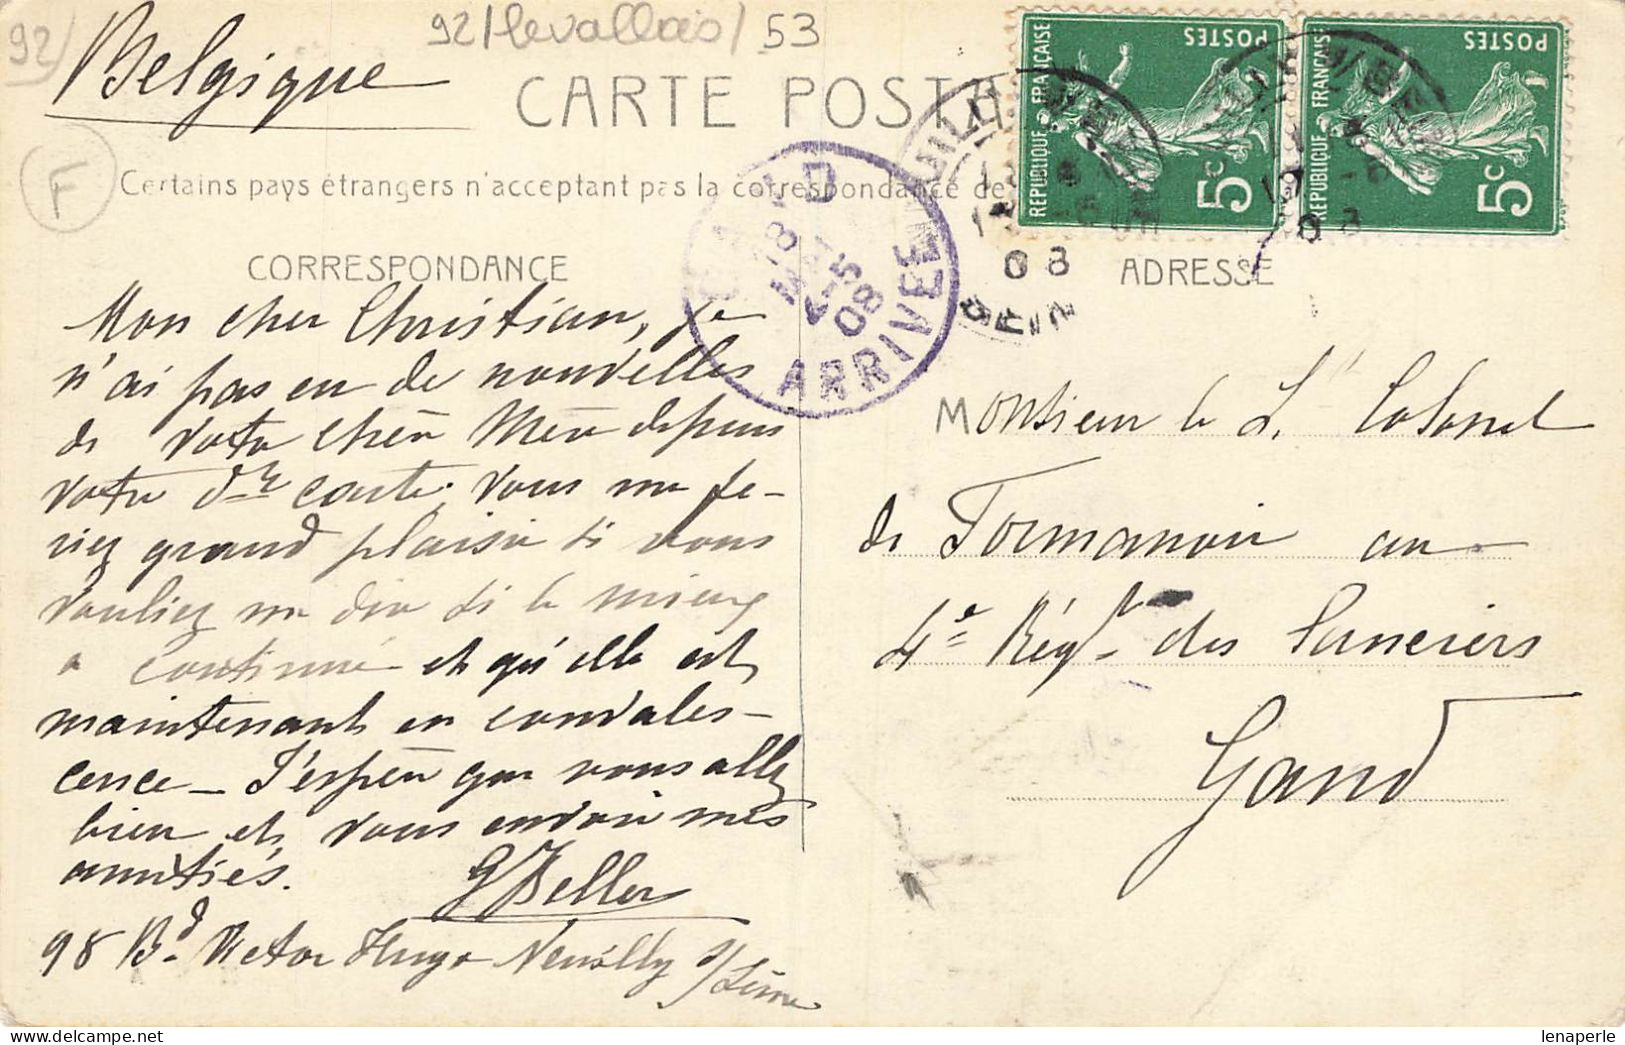 92/
92/levallois/53
Belgique
CARTE POSTA
F
Certains pays étrangers n'acceptent pas la correspondance de
CORRESPONDANCE
Mon cher Christian, je
n'ai pas eu de nouvelles
de votre chère Mère depuis
votre dre carte. Vous me fe-
riez grand plaisir si vous
vouliez me dire si le mieux
a continué et qu'elle est
maintenant en convales-
cence – J'espère que vous allez
bien et vous envoie mes
amitiés.
98 Bd Victor Hugo Neuilly s/Seine
GAND
ARRIVÉE
08
POSTES
REPUBLIQUE FRANÇAISE
5c
POSTES
REPUBLIQUE FRANÇAISE
5c
08
08
ADRESSE
Monsieur le Lt Colonel
de Formanoir au
4e Régt des Lanciers
Gand
lenaperle